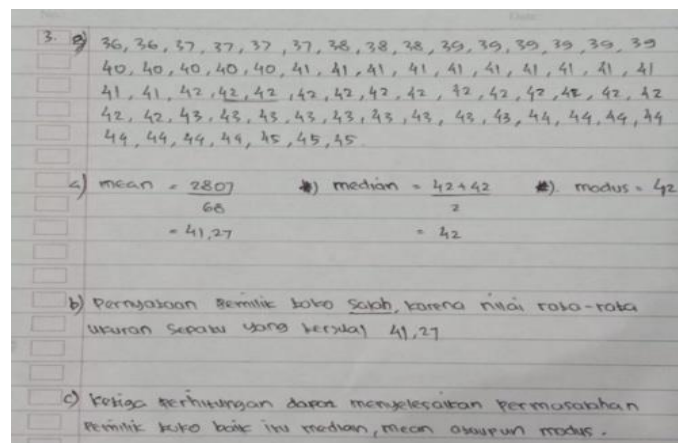 3. a) 36, 36, 37, 37, 37, 37, 38, 38, 38, 39, 39, 39, 39, 39, 39
40, 40, 40, 40, 40, 41, 41, 41, 41, 41, 41, 41, 41, 41, 41
41, 41, 42, 42, 42, 42, 42, 42, 42, 42, 42, 42, 42, 42, 42
42, 42, 43, 43, 43, 43, 43, 43, 43, 43, 43, 44, 44, 44, 44
44, 44, 44, 44, 45, 45, 45.
a) mean = 2807 / 68 median = 42+42 / 2 modus = 42
= 41,27 = 42
b) Pernyataan pemilik toko salah, karena nilai rata-rata
ukuran sepatu yang terjual 41,27
c) Ketiga perhitungan dapat menyelesaikan permasalahan
pemilik toko baik itu median, mean ataupun modus.